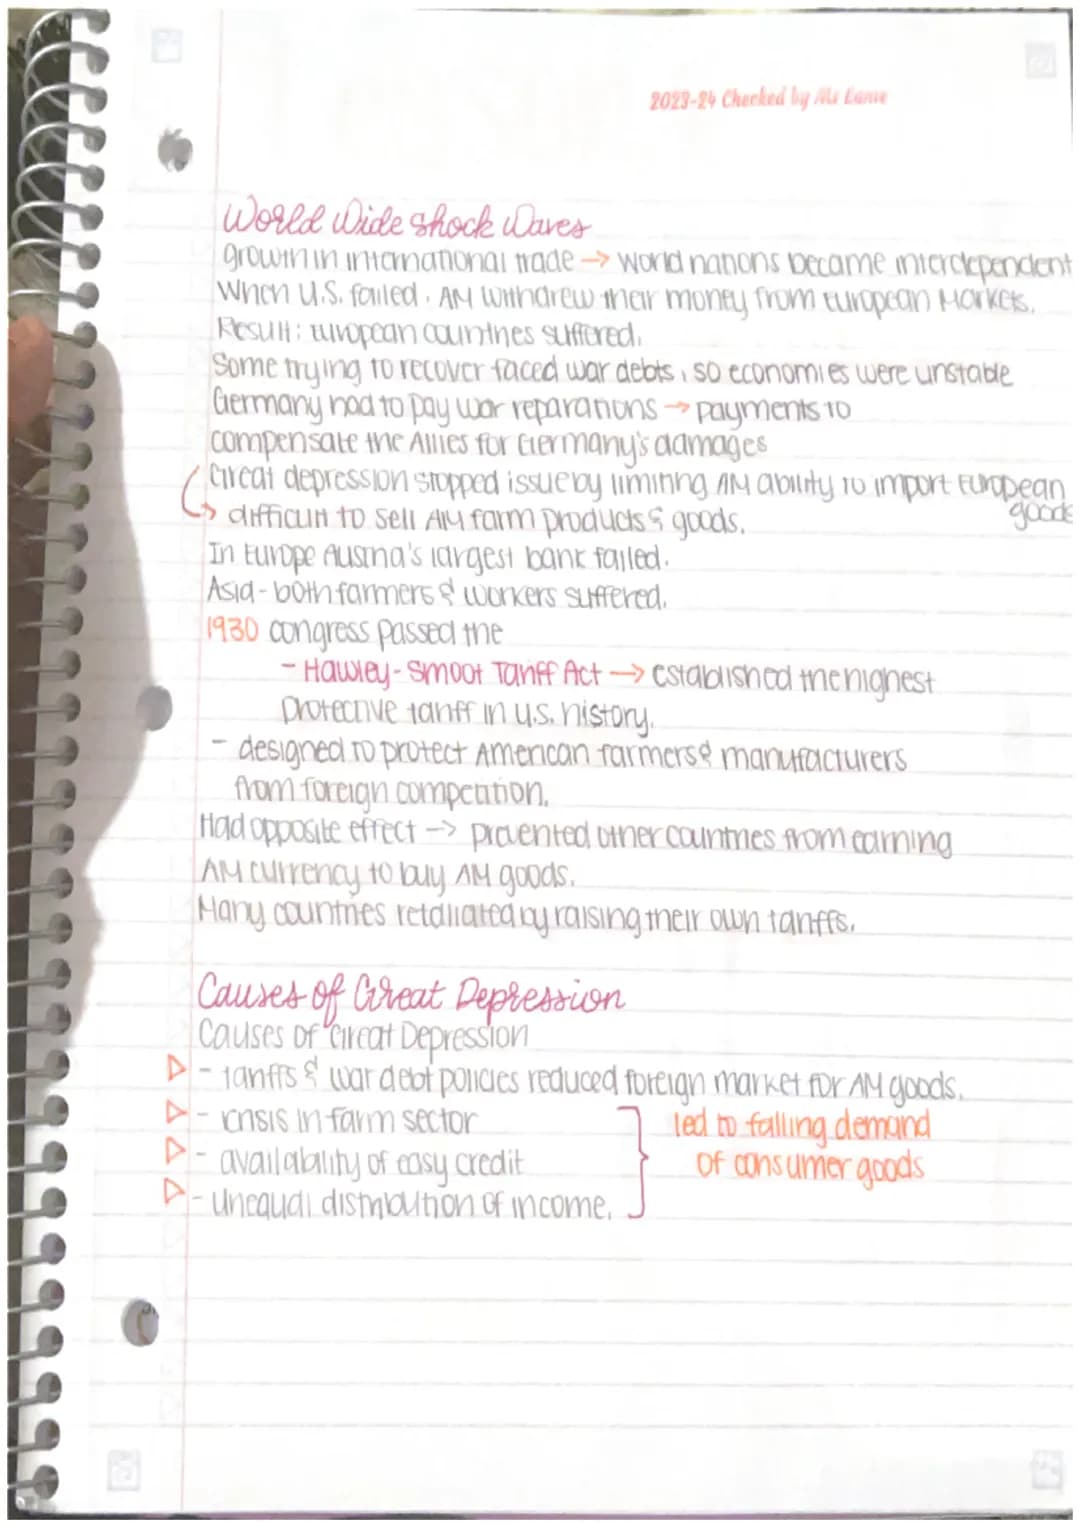 2023-24 Checked by Ms Lame
World Wide Shock Waves
growth in international trade → world nations became interdependent
When U.S. failed, AM withdrew their money from European Markets.
Result: European countries suffered.
Some trying to recover faced war debts, so economies were unstable
Germany had to pay war reparations → payments to
compensate the Allies for Germany's damages
Great depression stopped issue by limiting AM ability to import European goods
difficult to sell AM farm products & goods.
In Europe Austria's largest bank failed.
Asia - both farmers & workers suffered.
1930 congress passed the
- Hawley-Smoot Tariff Act → established the highest
protective tariff in U.S. history.
- designed to protect American farmers & manufacturers
from foreign competition.
Had opposite effect -> prevented other countries from earning
AM currency to buy AM goods.
Many countries retaliated by raising their own tariffs.
Causes of Great Depression
Causes of Great Depression
- tariffs & war debt policies reduced foreign market for AM goods.
- crisis in farm sector
- availability of easy credit
- unequal distribution of income.
led to falling demand
of consumer goods